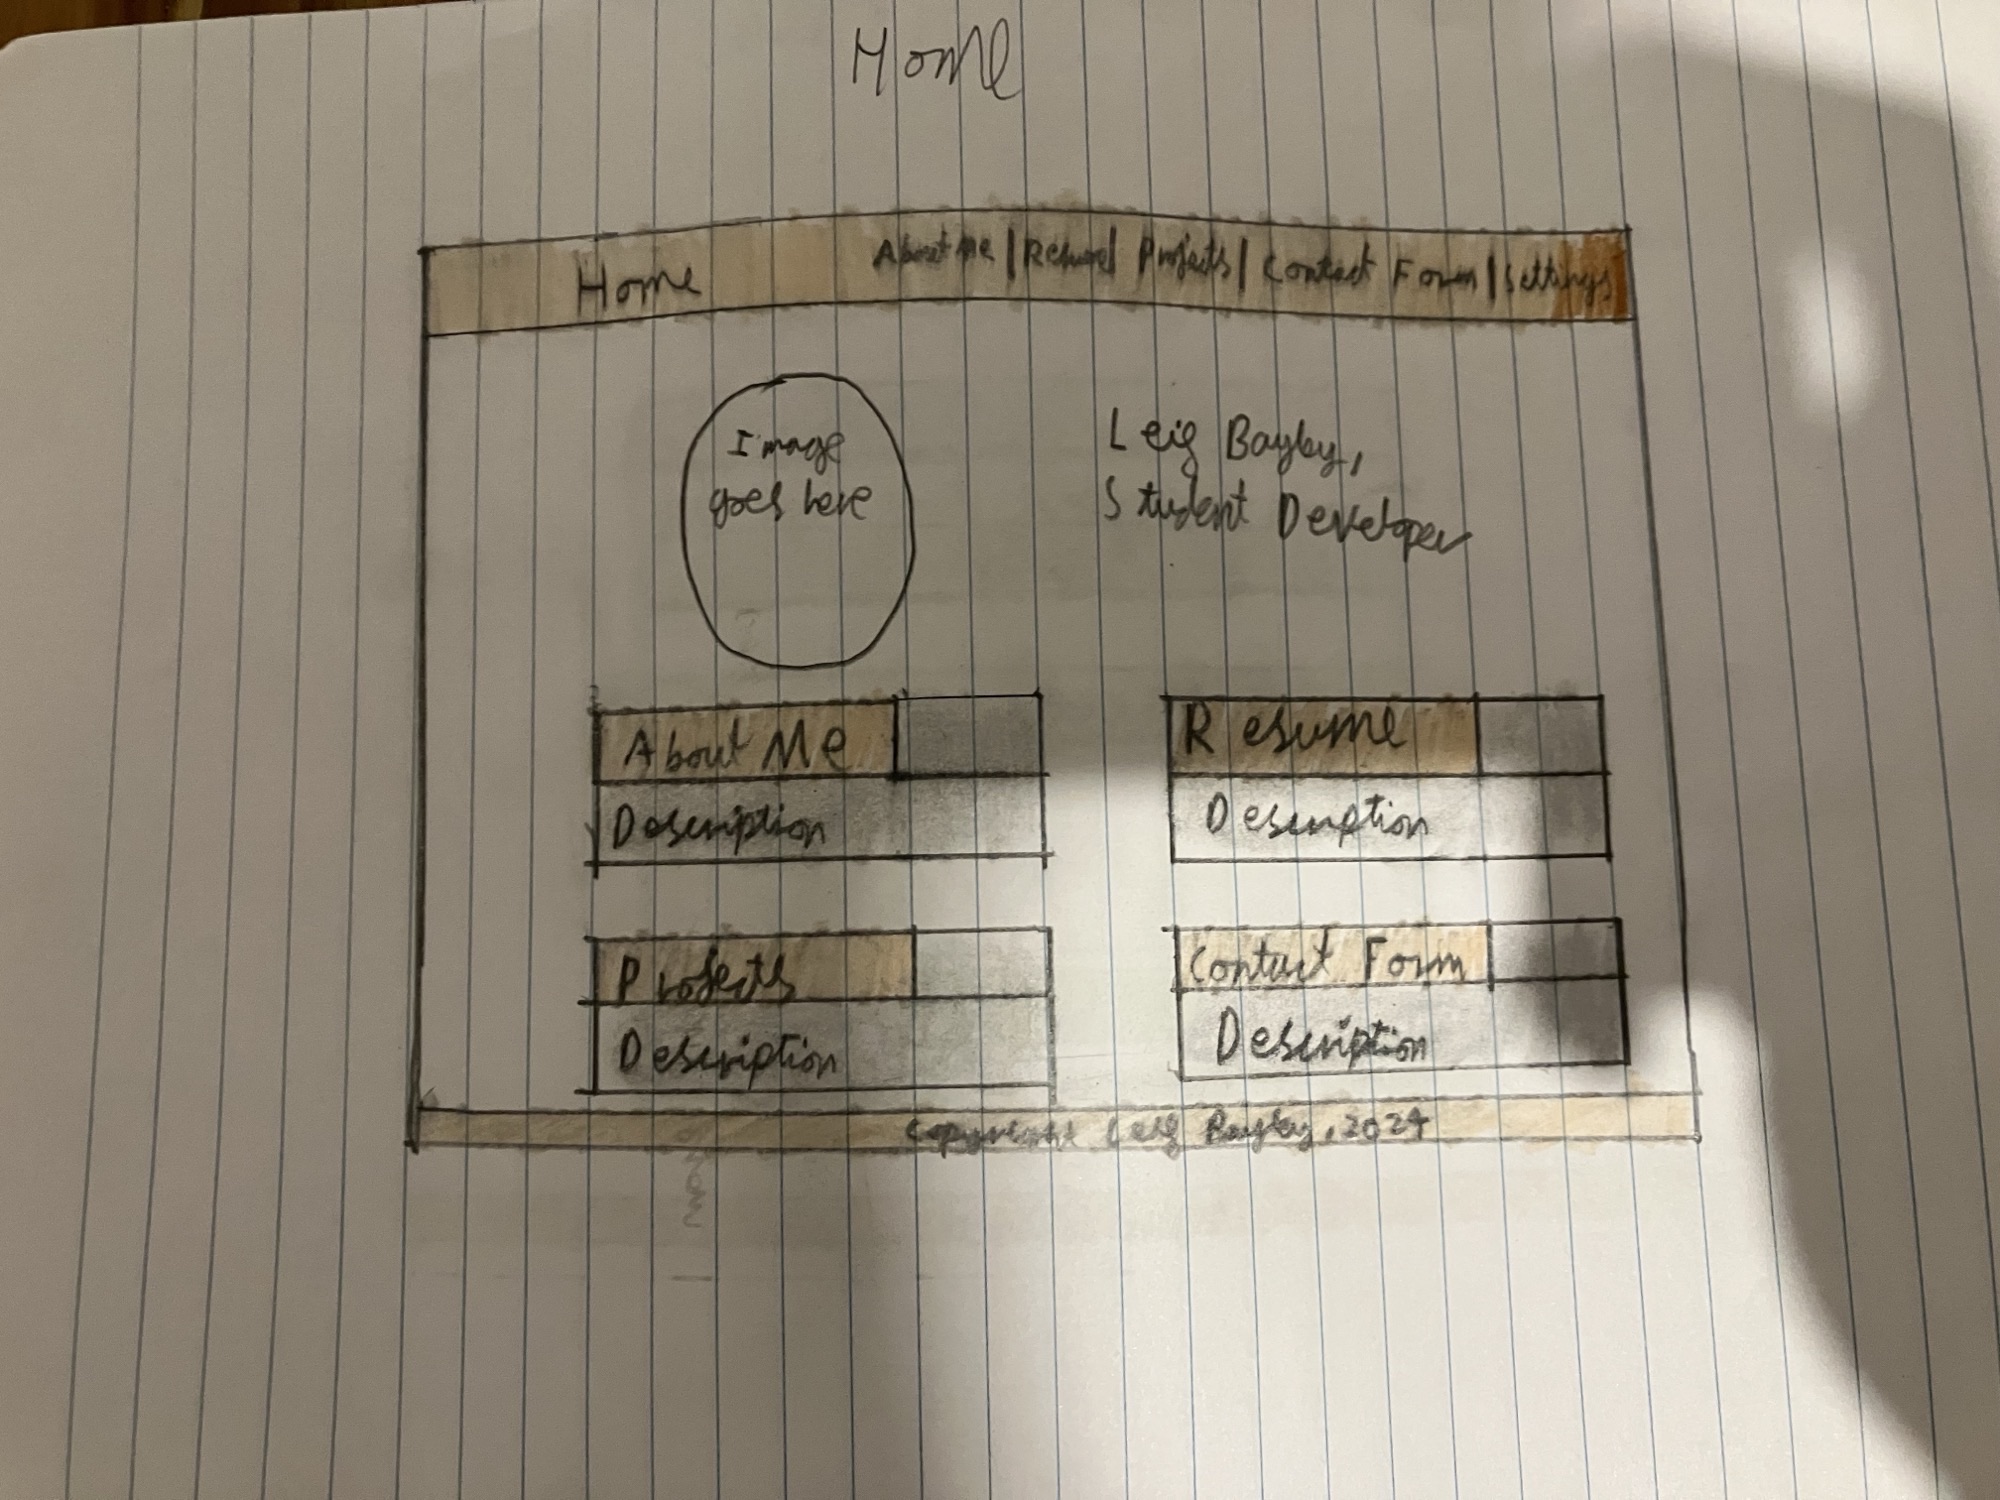 Home
Home About me | Resume | Projects | Contact Form | Settings
Image
goes here
Leig Bayley,
Student Developer
About Me
Description
Resume
Description
Projects
Description
Contact Form
Description
Leig Bayley, 2024